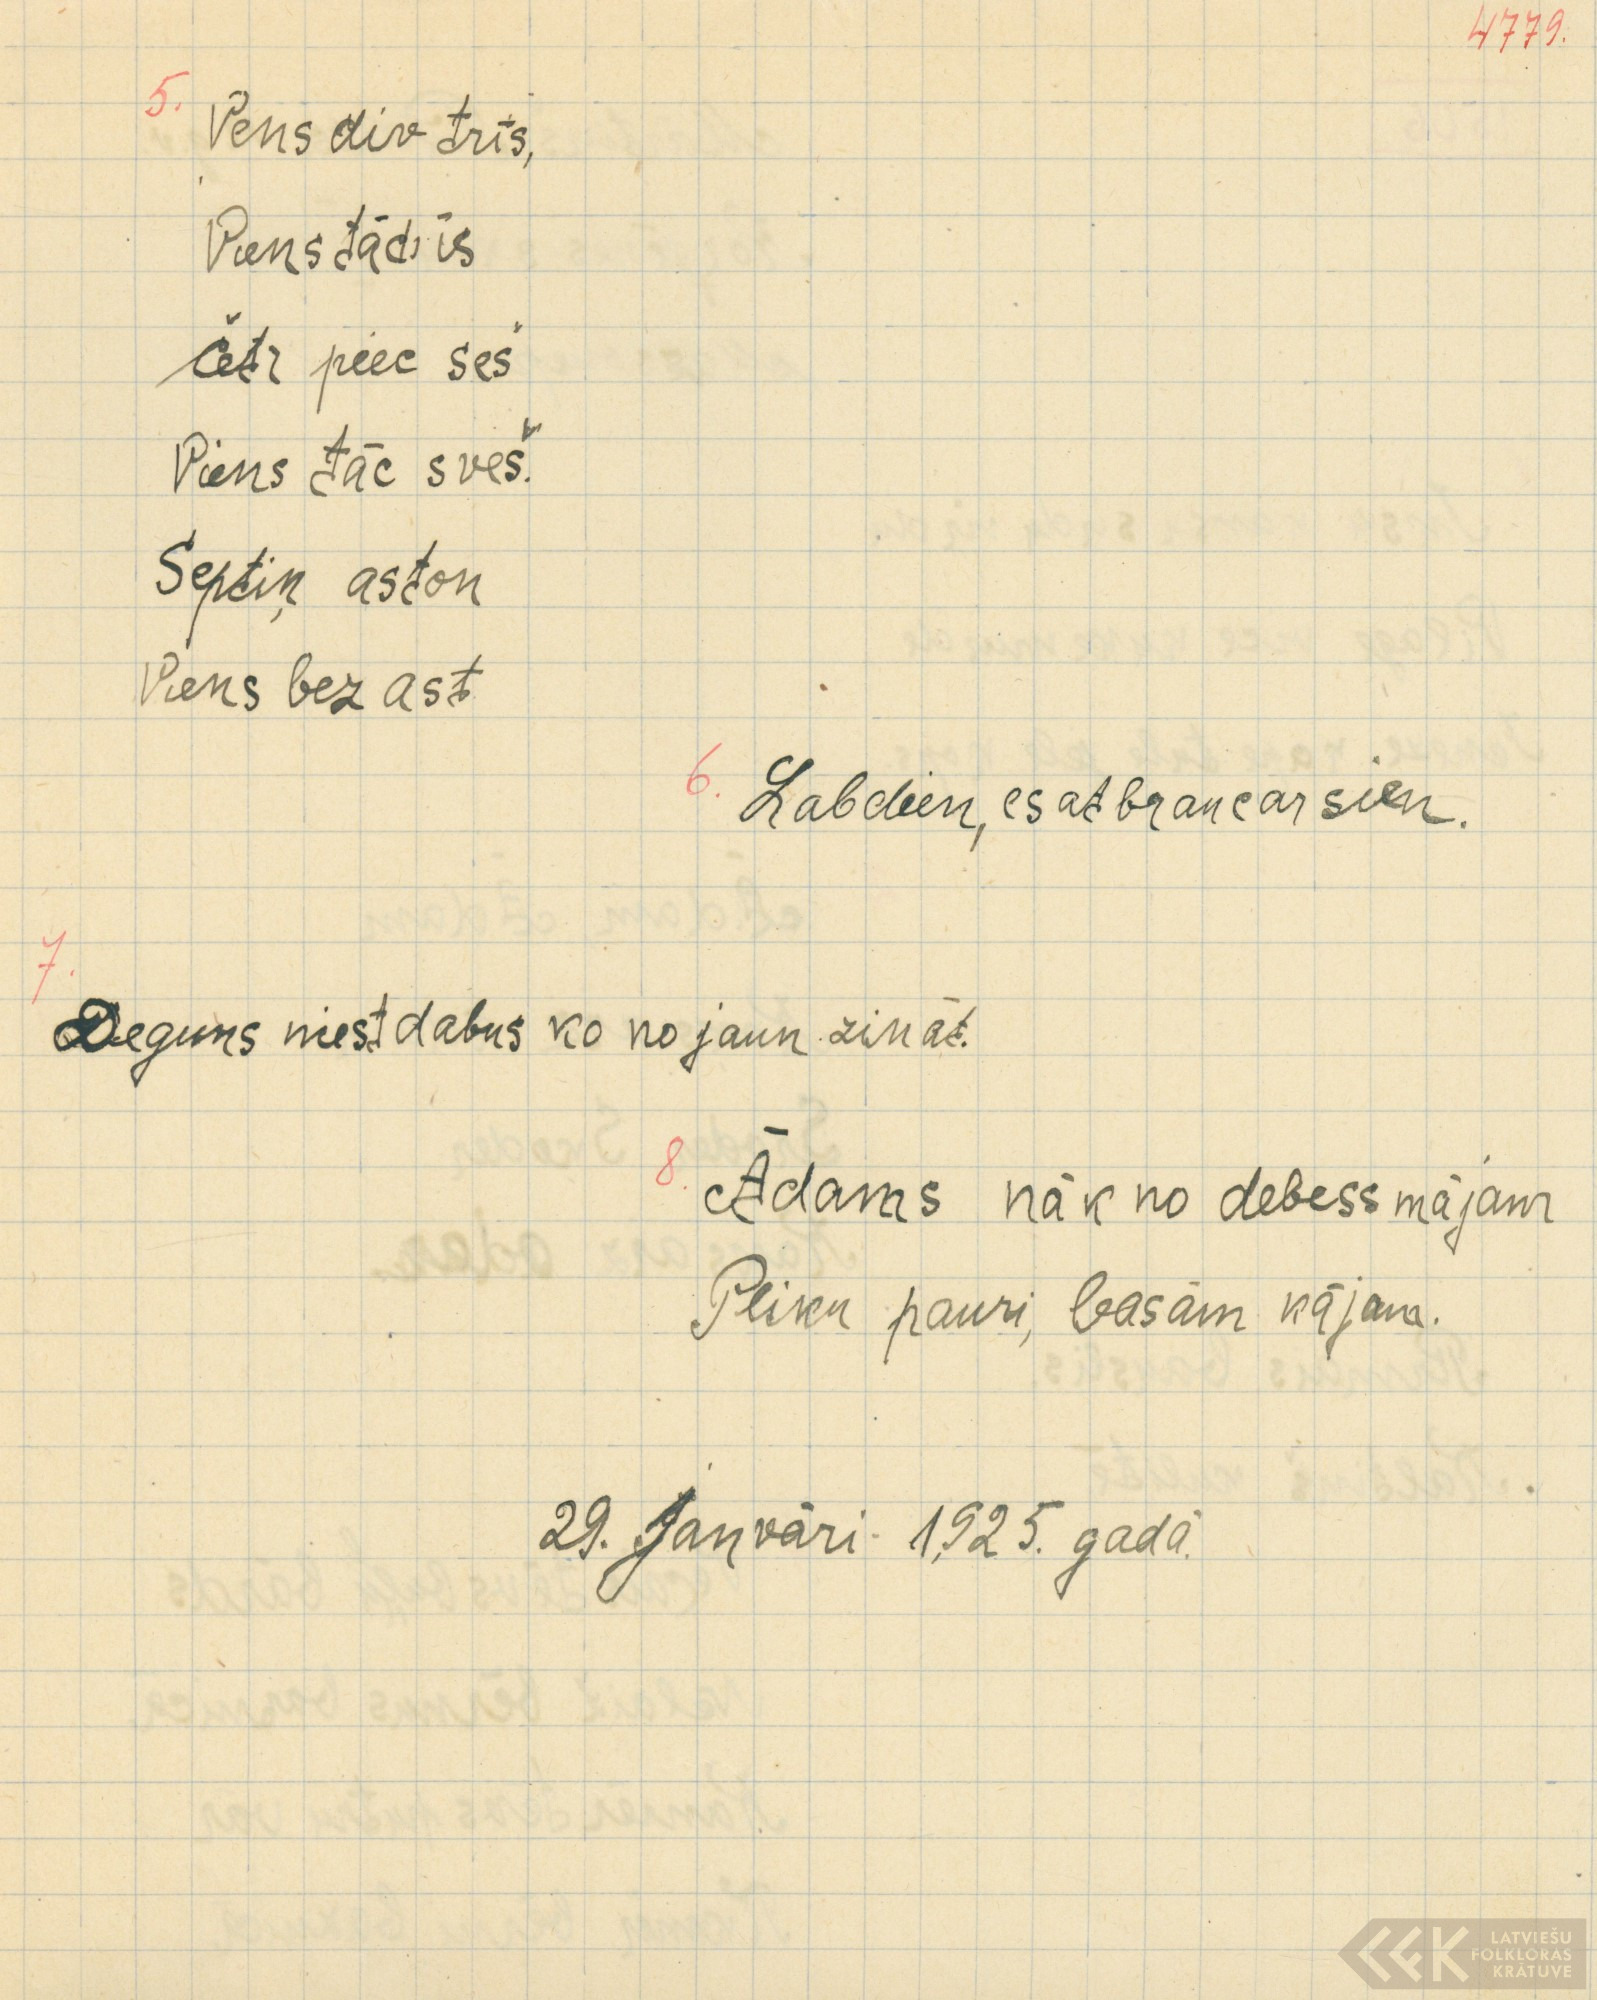 4779.
5. Vens div trīs,
Viens tād īs
Četr piec seš
Viens tāc sveš.
Septiņ aston
Viens bez ast
6. Labdien, es atbrauc ar sien.
7.
Deguns niest dabus ko no jaun zināt.
8. Ādams nāk no debess mājam
Pliku pauri, basām kājam.
29. Janvāri 1925. gadā.
LATVIEŠU
FOLKLORAS
KRĀTUVE